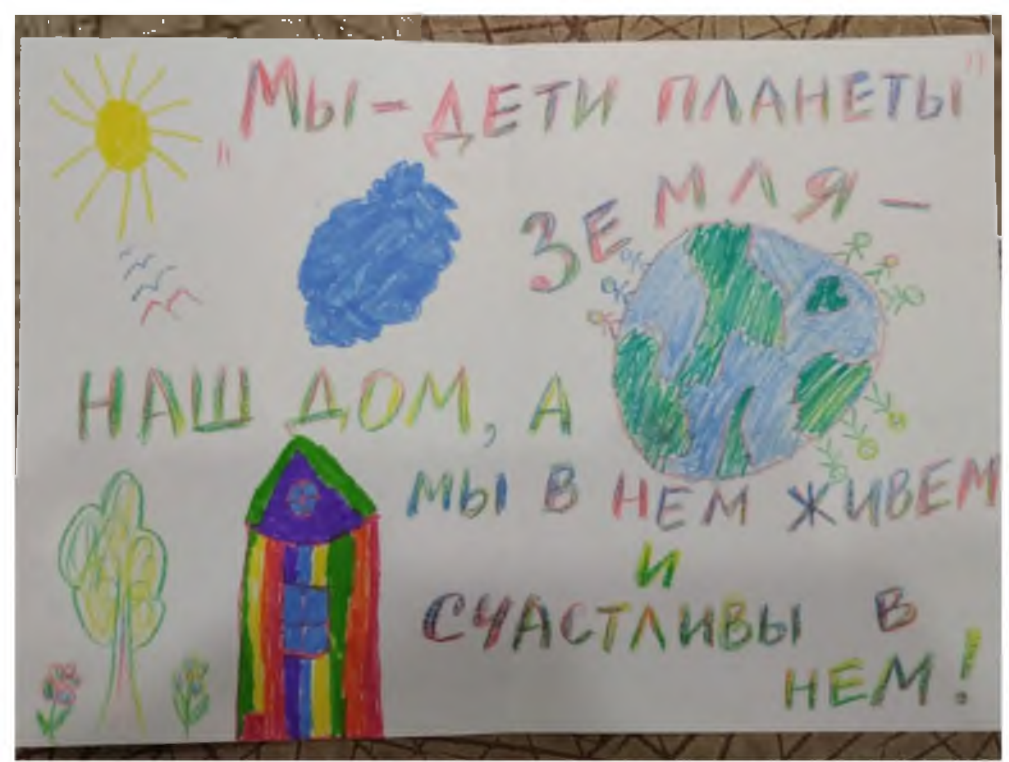 „Мы - ДЕТИ ПЛАНЕТЫ"
ЗЕМЛЯ -
НАШ ДОМ, А
МЫ В НЕМ ЖИВЕМ
И
СЧАСТЛИВЫ В
НЕМ!